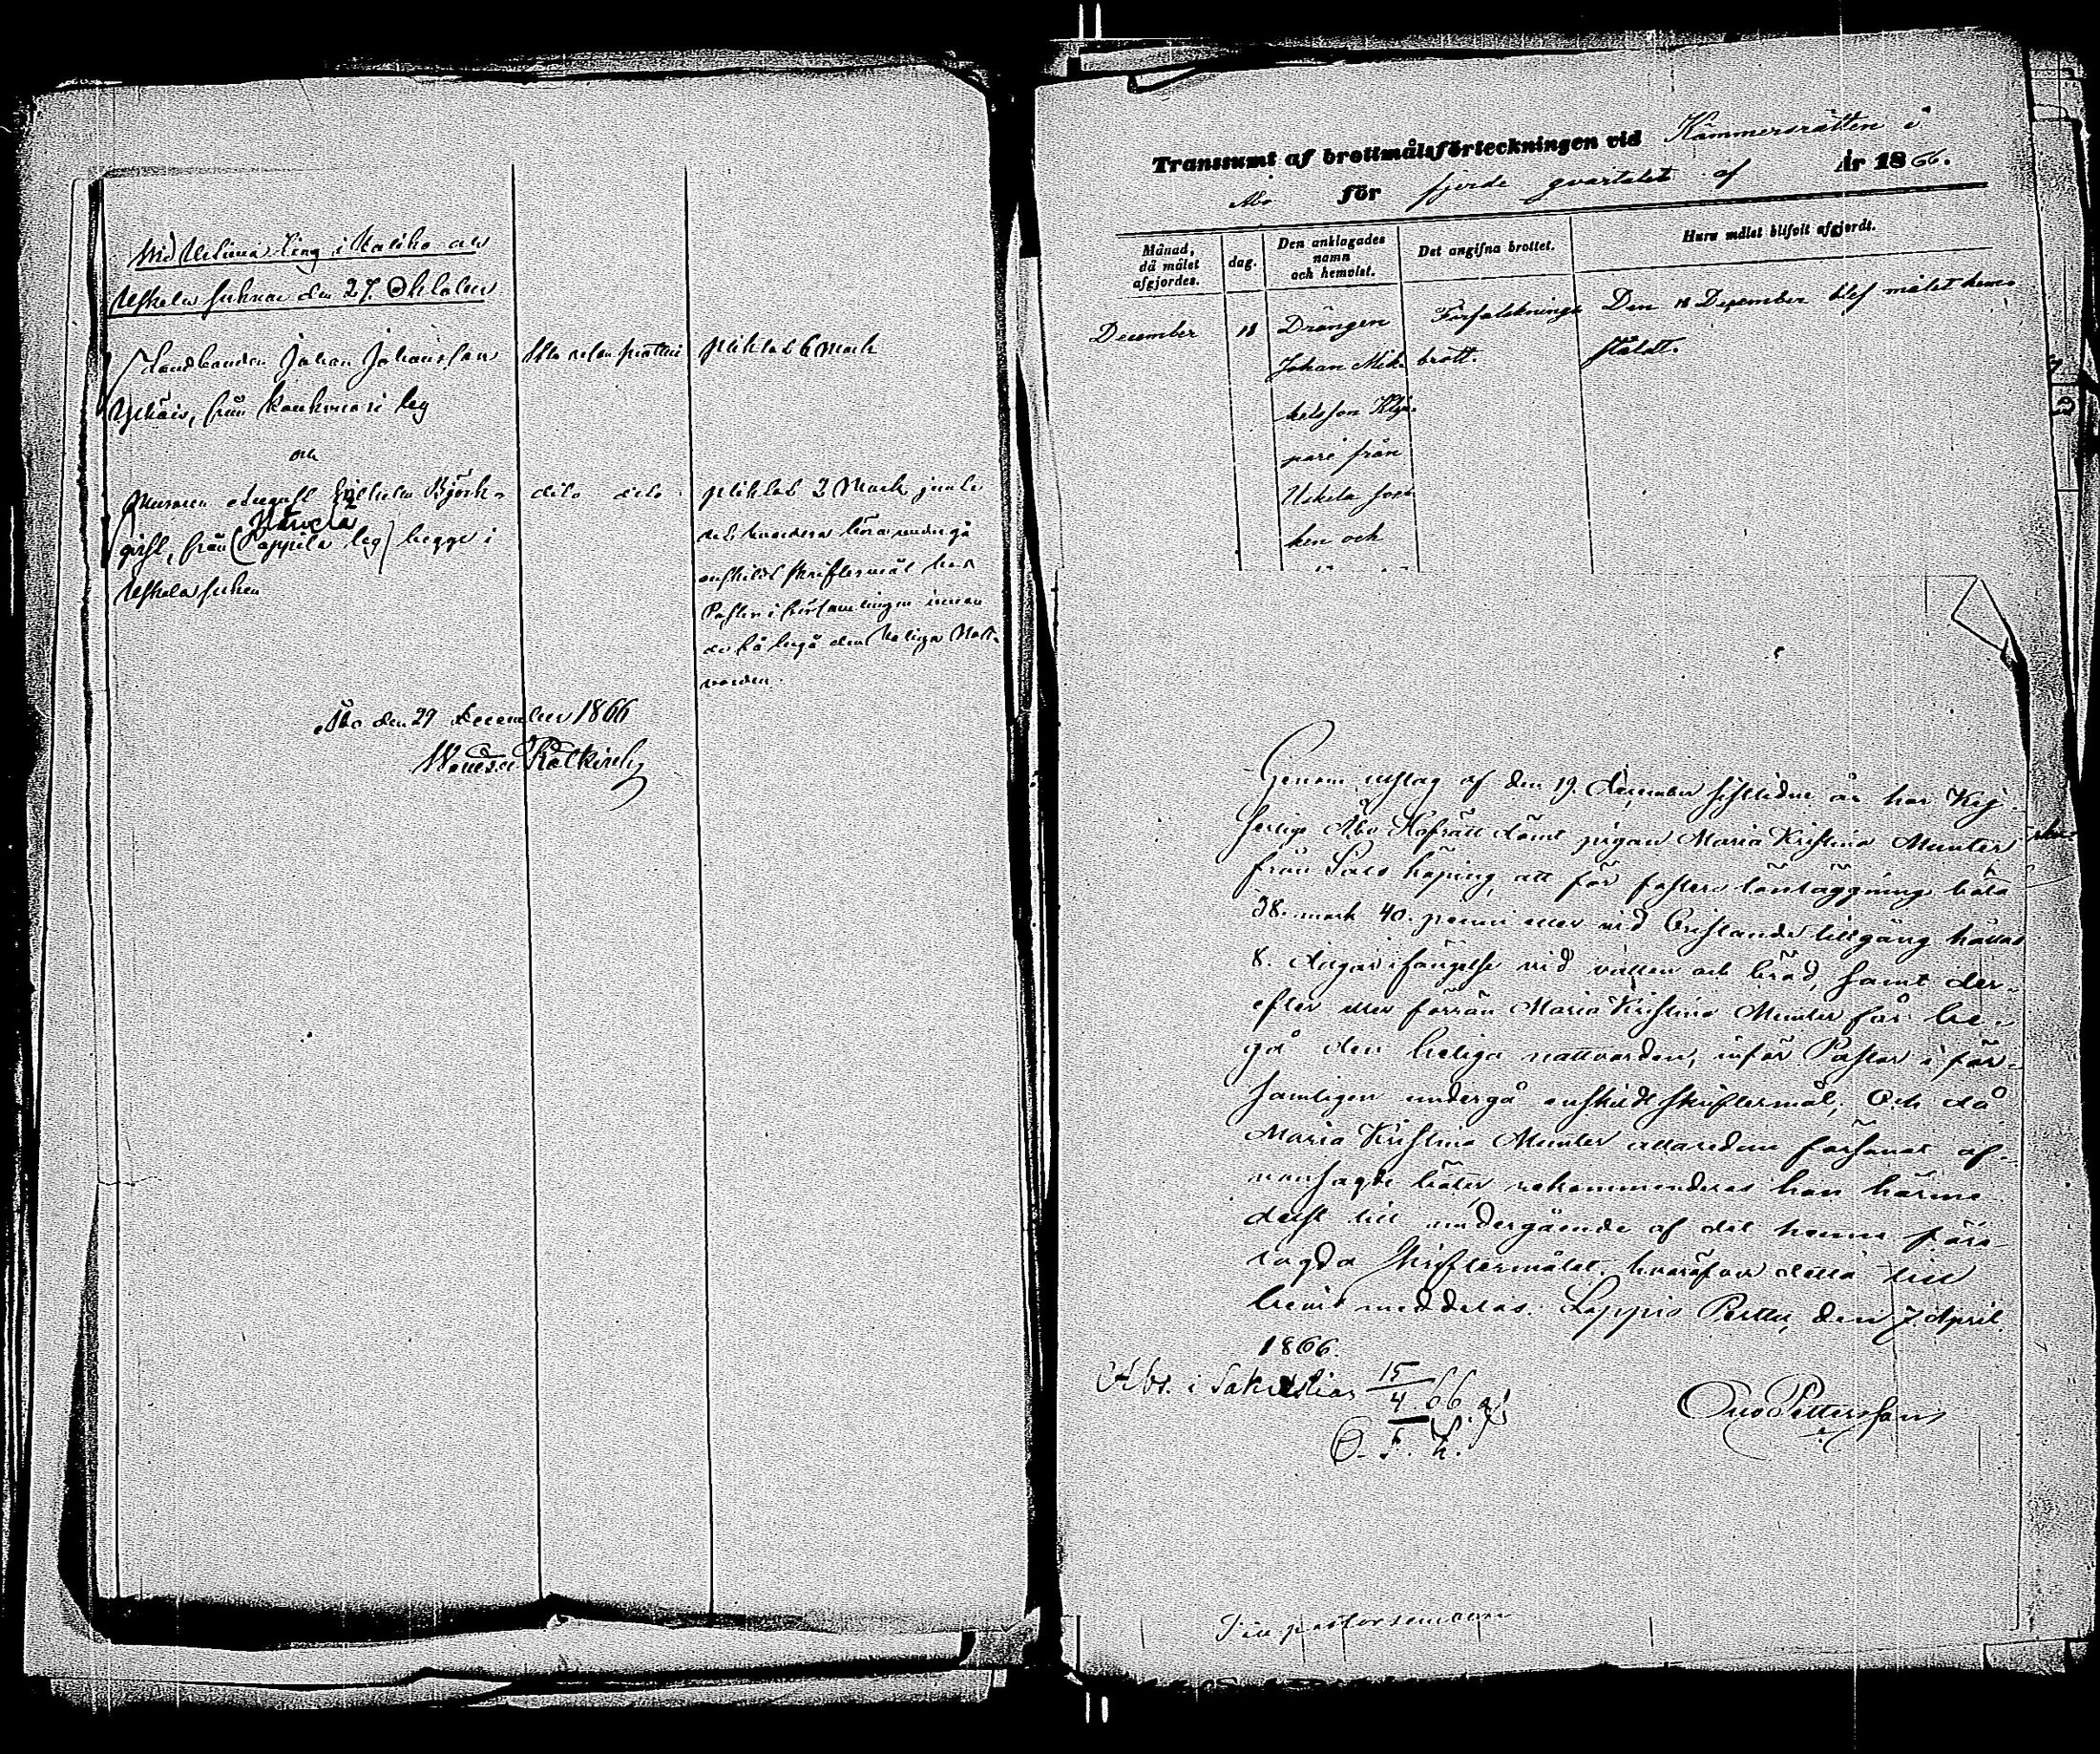 Vid Urtima Ting i Haliko och
Uskela socknar den 27. Oktober
Landbonden Johan Johansson
från Kaukvuori by
pliktat 6 Mark
och
Muraren August Vilhelm Björk-
dito dito
pliktat 2 Mark jemte
qvist, från (Pappila by) begge i
Uskela socken
det hvardera böra undergå
enskildt skriftermål hos
Pastor i församlingen innan
de få begå den heliga Natt-
varden.
Åbo den 29 December 1866
Transsumt af brottmålsförteckningen vid Kämnersrätten i
Åbo för fjerde qvartalet af År 1866.
Månad, då målet afgjordes.
dag.
Den anklagades namn och hemvist.
Det angifna brottet.
Huru målet blifvit afgjordt.
December
18
Drängen
Johan Mik-
kelsson Klju-
pari från
Uskela soc-
ken och
Förfalsknings-
brott.
Den 18 December blef målet hem-
stäldt.
Genom utslag af den 19. December sistlidne år har Kej-
serlige Åbo Hofrätt dömt pigan Maria Kristina Munter
från Salo köping, att för fosters lönläggning böta
38. mark 40. penni eller vid bristande tillgång hållas
8. dagar i fängelse vid vatten och bröd, samt der-
efter eller förrän Maria Kristina Munter får be-
gå den heliga nattvarden, inför Pastor i för-
samligen undergå enskildt skriftermål; Och då
Maria Kristina Munter allaredan försonat of-
vansagde böter rekommenderas hon härme-
delst till undergående af det henne före-
lagda skriftermålet, hvaröfver detta till
bevis meddelas. Loppis Perttu, den 7 April
1866.
Abs. i Sakristian 15/4 66 af
O. F. H.
Otto Pettersson
Till pastorsembetet